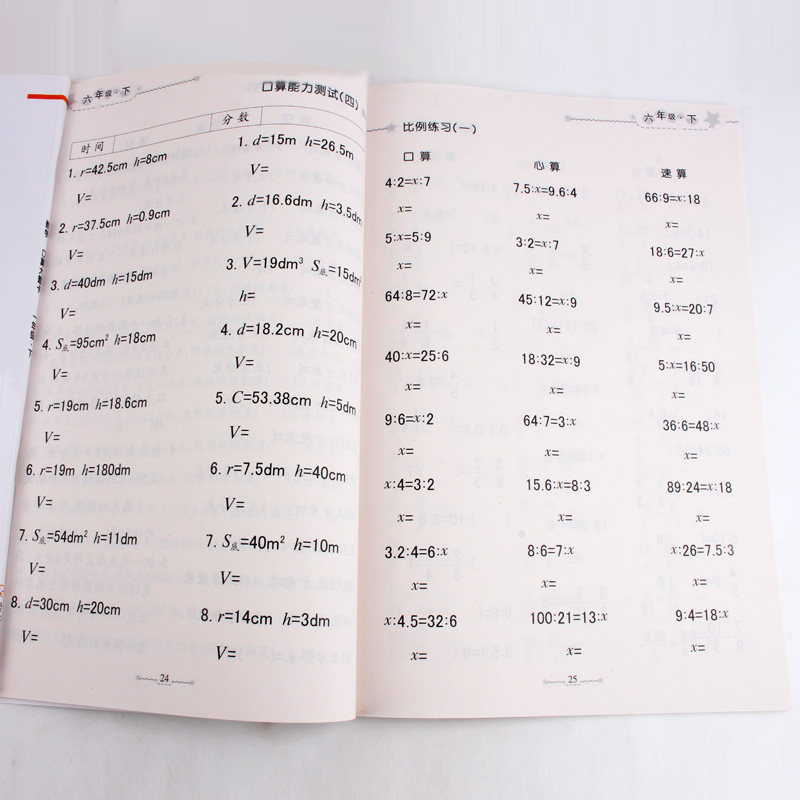 六年级·下
口算能力测试(四)
时间 分数
1. r=42.5cm h=8cm
V=
2. r=37.5cm h=0.9cm
V=
3. d=40dm h=15dm
V=
4. S底=95cm² h=18cm
V=
5. r=19cm h=18.6cm
V=
6. r=19m h=180dm
V=
7. S底=54dm² h=11dm
V=
8. d=30cm h=20cm
V=
1. d=15m h=26.5m
V=
2. d=16.6dm h=3.5dm
V=
3. V=19dm³ S底=15dm²
h=
4. d=18.2cm h=20cm
V=
5. C=53.38cm h=5dm
V=
6. r=7.5dm h=40cm
V=
7. S底=40m² h=10m
V=
8. r=14cm h=3dm
V=
24
六年级·下
比例练习(一)
口算 心算 速算
4:2=x:7 7.5:x=9.6:4 66:9=x:18
x= x= x=
5:x=5:9 3:2=x:7 18:6=27:x
x= x= x=
64:8=72:x 45:12=x:9 9.5:x=20:7
x= x= x=
40:x=25:6 18:32=x:9 5:x=16:50
x= x= x=
9:6=x:2 64:7=3:x 36:6=48:x
x= x= x=
x:4=3:2 15.6:x=8:3 89:24=x:18
x= x= x=
3.2:4=6:x 8:6=7:x x:26=7.5:3
x= x= x=
x:4.5=32:6 100:21=13:x 9:4=18:x
x= x= x=
25